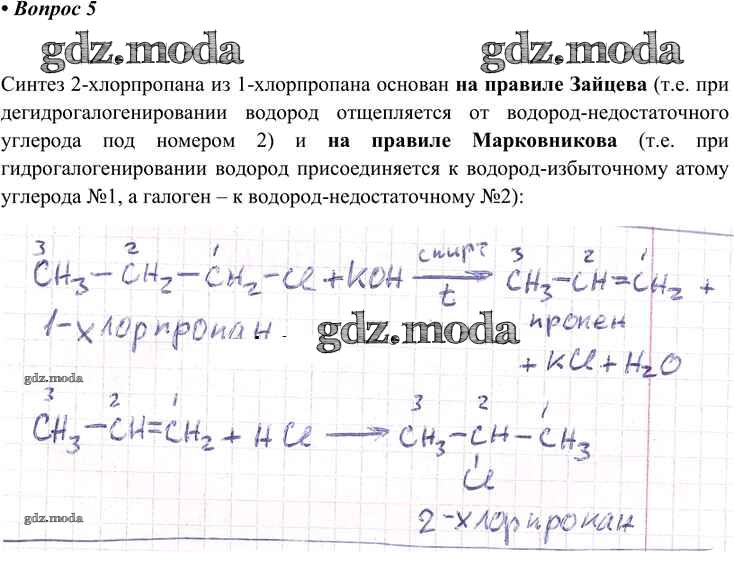 • Вопрос 5
gdz.moda gdz.moda
Синтез 2-хлорпропана из 1-хлорпропана основан на правиле Зайцева (т.е. при
дегидрогалогенировании водород отщепляется от водород-недостаточного
углерода под номером 2) и на правиле Марковникова (т.е. при
гидрогалогенировании водород присоединяется к водород-избыточному атому
углерода №1, а галоген – к водород-недостаточному №2):
3 2 1 спирт 3 2 1
CH3 – CH2 – CH2 – Cl + KOH ⟶ CH3 – CH = CH2 +
t
1-хлорпропан. gdz.moda пропен
+ KCl + H2O
gdz.moda
3 2 1 3 2 1
CH3 – CH = CH2 + HCl ⟶ CH3 – CH – CH3
Cl
gdz.moda 2-хлорпропан